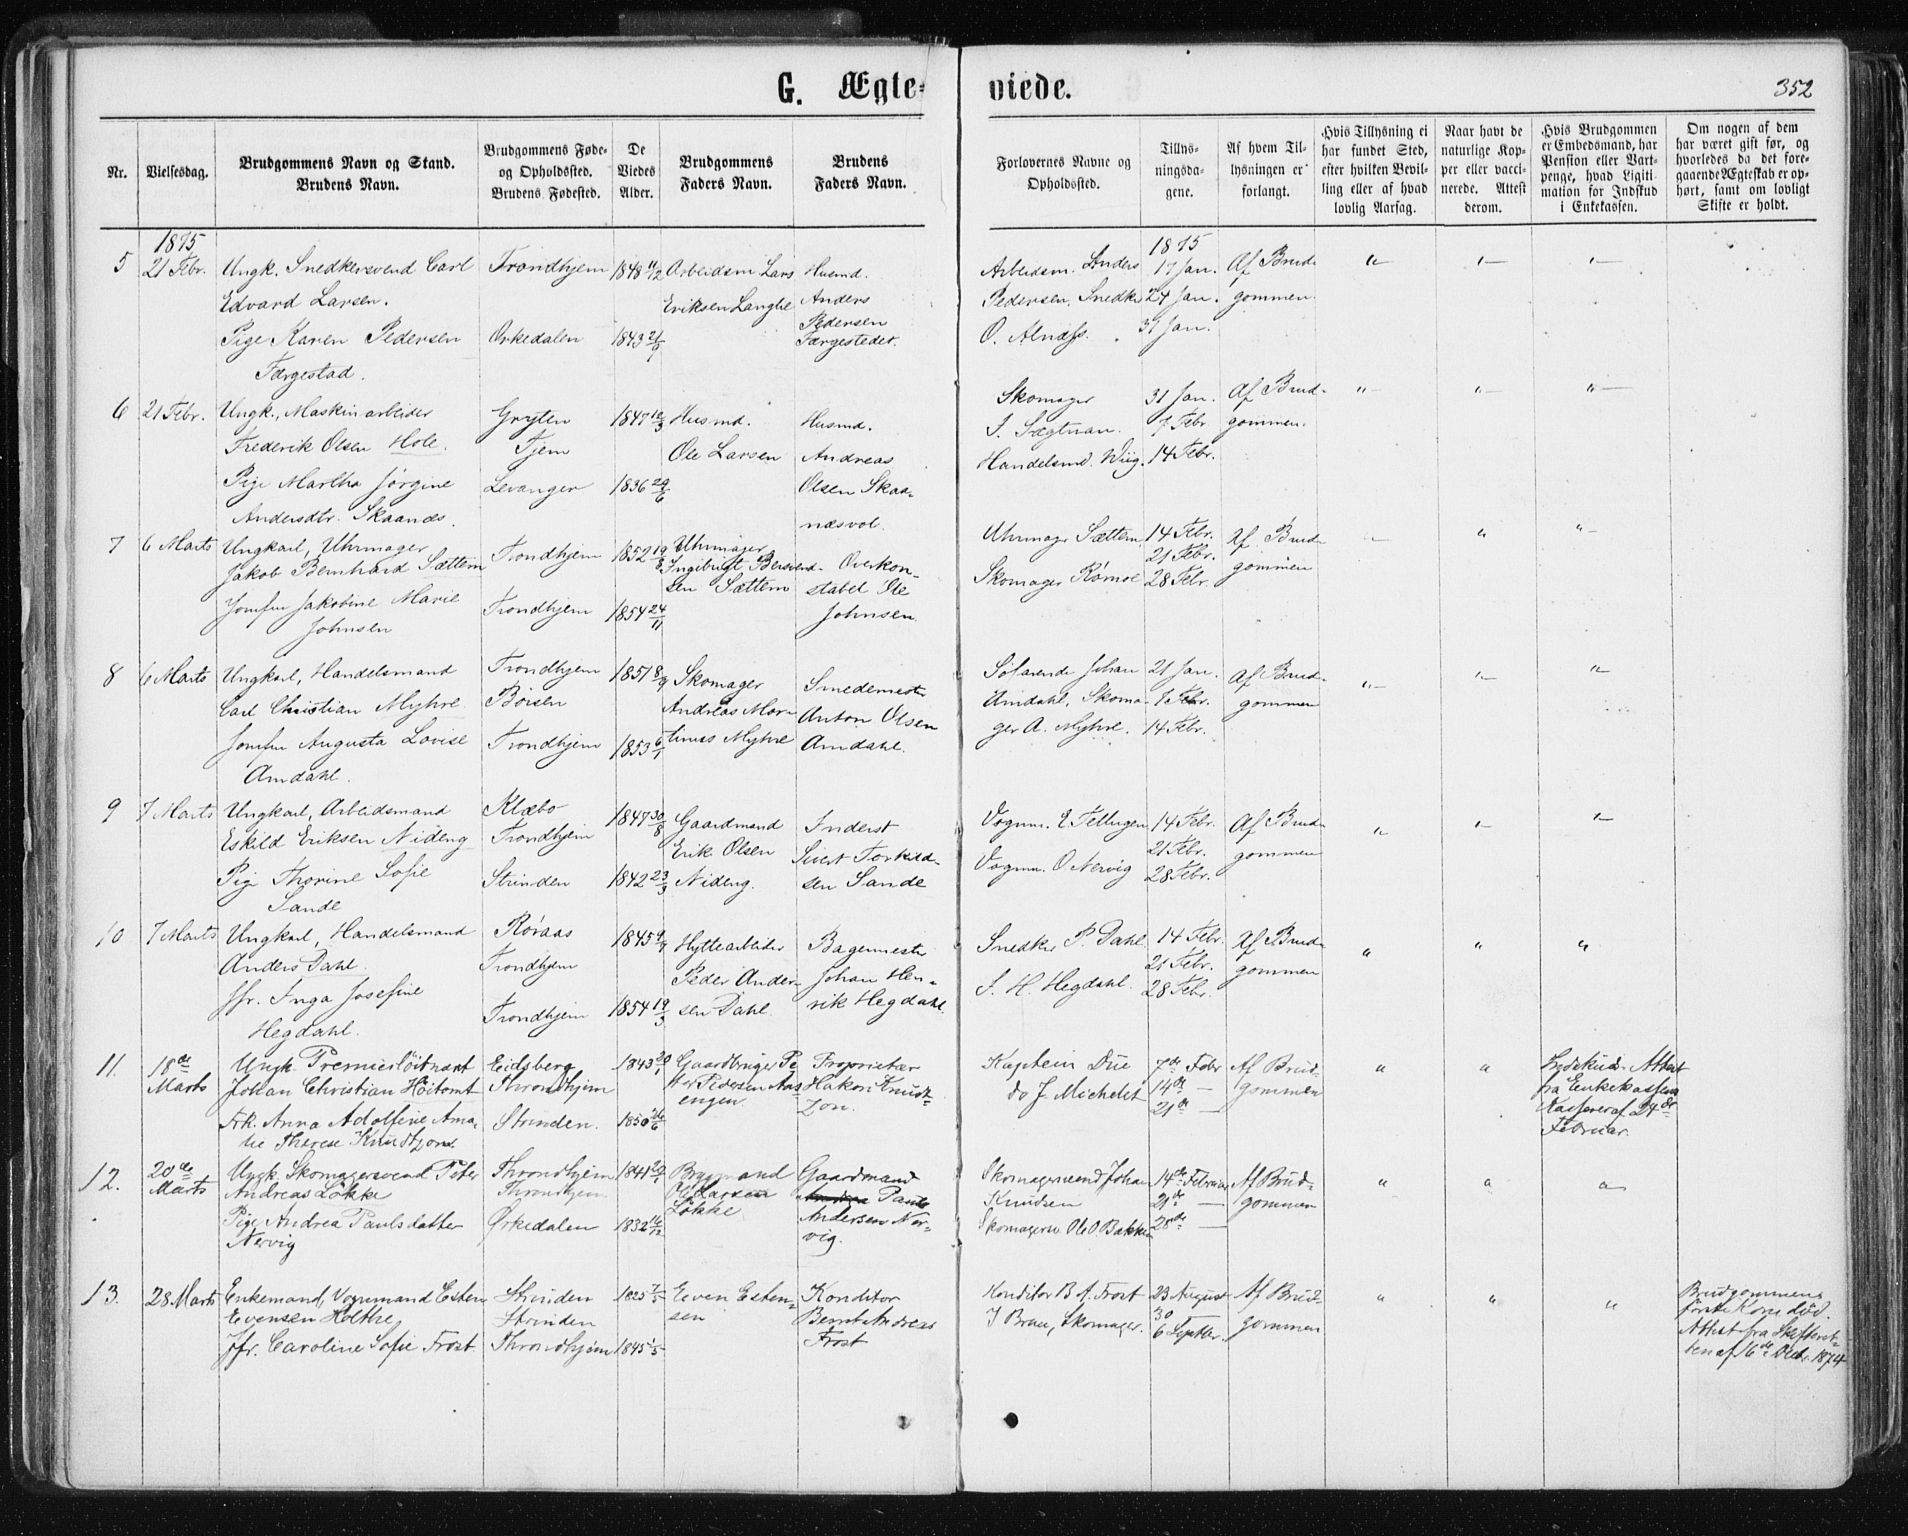 G. Ægte-
viede.
352
Nr.
Vielsesdag.
Brudgommens Navn og Stand.
Brudens Navn.
Brudgommens Føde-
og Opholdssted.
Brudens Fødested.
De
Viedes
Alder.
Brudgommens
Faders Navn.
Brudens
Faders Navn.
Forlovernes Navne og
Opholdssted.
Tillys-
ningsda-
gene.
Af hvem Til-
lysningen er
forlangt.
Hvis Tillysning ei
har fundet Sted,
efter hvilken Bevil-
ling eller af hvad
lovlig Aarsag.
Naar havt de
naturlige Kop-
per eller vacci-
nerede. Attest
derom.
Hvis Brudgommen
er Embedsmand, har
Pension eller Vart-
penge, hvad Ligiti-
mation for Indskud
i Enkekassen.
Om nogen af dem
har været gift før, og
hvorledes da det fore-
gaaende Ægteskab er op-
hørt, samt om lovligt
Skifte er holdt.
1875
5
21 Febr.
Ungk. Snedkersvend Carl
Edvard Larsen.
Pige Karen Pedersen
Færgestad.
Trondhjem
Orkedalen
1848 11/12
1843 21/9
Arbeidsm Lars
Eriksen Langlie
Husmd.
Anders
Pedersen
Færgestedet.
1875
Arbeidsm. Anders
Pedersen, Snedker
O. Alnæss.
17 Jan.
24 Jan.
31 Jan.
Af Brud-
gommen.
6
21 Febr.
Ungk., Maskinarbeider
Frederik Olsen Hole.
Pige Martha Jørgine
Andersdtr. Skaanes.
Gryten
Tjem
Levanger
1847 12/3
1836 29/6
Husmd.
Ole Larsen
Husmd.
Andreas
Olsen Skaa-
næsvol.
Skomager
J. Sægtnan.
Handelsmd. Wiig.
31 Jan.
7 Febr
14 Febr.
Af Brud-
gommen.
7
6 Marts
Ungkarl, Uhrmager
Jakob Bernhard Sættem
Jomfru Jakobine Marie
Johnsen
Trondhjem
Trondhjem
1852 19/8
1854 24/11
Uhrmager
Ingibrigt Bersvend-
sen Sættem
Overkon-
stabel Ole
Johnsen
Uhrmager Sættem
Skomager Rømoe
14 Febr.
21 Febr.
28 Febr.
Af Brud-
gommen
8
6 Marts
Ungkarl, Handelsmand
Carl Christian Myhre
Jomfru Augusta Lovise
Amdahl.
Trondhjem
Børsen
Trondhjem
1851 8/9
1853 6/1
Skomager
Andreas Mar-
tinus Myhre
Smedemester
Anton Olsen
Amdahl.
Søfarende Johan
Amdahl, Skoma-
ger A. Myhre.
21 Jan.
7 Febr.
14 Febr.
Af Brud-
gommen
9
7 Marts
Ungkarl, Arbeidsmand
Eskild Eriksen Nideng
Pige Thorine Sofie
Sande
Klæbo
Trondhjem
Strinden
1847 30/8
1842 23/3
Gaardmand
Erik Olsen
Nideng.
Inderst
Sivert Torkild-
sen Sande
Vognm. E. Tellugen
Vognm. O Nervig
14 Febr.
21 Febr.
28 Febr.
Af Brud-
gommen
10
7 Marts
Ungkarl, Handelsmand
Anders Dahl.
Jfr. Inga Josefine
Hegdahl.
Røraas
Trondhjem
Trondhjem
1845 9/7
1854 19/3
Hyttearbeider
Peder Ander-
sen Dahl.
Bagermester
Johan Hen-
rik Hegdahl
Snedker P. Dahl
J. H. Hegdahl.
14 Febr.
21 Febr.
28 Febr.
Af Brud-
gommen
11.
18de
Marts
Ungk. Premierlöitnant
Johan Christian Höitomt
Frk. Anna Adolfine Ama-
lie Therese Knudtzon
Eidsberg
Throndhjem
Strinden.
1843 20/1
1850 26/6
Gaardbruger Pe
ter Pedersen Aas-
engen
Proprietær
Hakon Knudt-
zon.
Kaptein Due
do J Michelet
7de Febr
14de —
21de —
Af Brud-
gommen
Indskud. Attest
fra Enkekassens
Kasserer af 24de
Februar.
12.
20de
Marts
Ungk. Skomagersvend Peter
Andreas Løkke
Pige Andrea Paulsdatter
Nervig
Throndhjem
Throndhjem
Ørkedalen
1832 16/12
Brygmand
Ole Larsen
Løkke
Gaardmand
Paul
Andersen Ner-
vig.
Skomagersvend Johan
Knudsen
Skomagersv. Ole O Bakken
14de Februar
21de —
28de —
Af Brud-
gommen
13.
28 Marts
Enkemand, Vognmand Esten
Evensen Holthe
Jfr. Caroline Sofie Frost
Strinden
Strinden
Throndhjem
1825 7/5
1845 1/5
Even Esten-
sen
Konditor
Bernt Andreas
Frost
Konditor B A. Frost
J Bruu, Skomager.
23 August
30 —
6 Septbr.
Af Brud-
gommen
Brudgommens
første Kone død.
Attest fra Skifteret-
ten af 16de Decbr. 1874